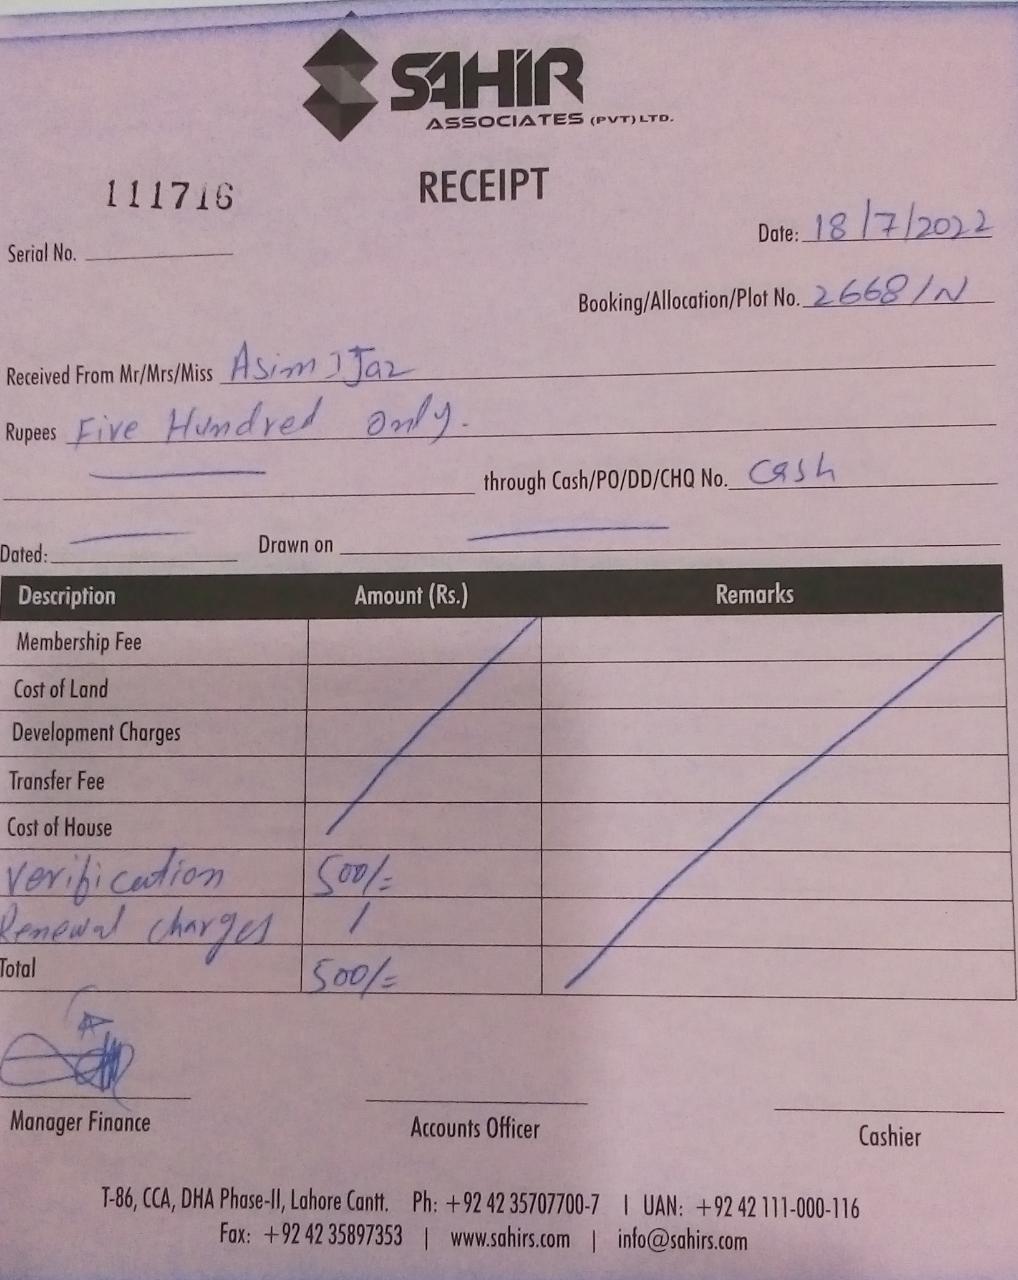 SAHIR
ASSOCIATES (PVT) LTD.
RECEIPT
111716
Date: 18/7/2022
Serial No.
Booking/Allocation/Plot No. 2668/N
Received From Mr/Mrs/Miss Asim IJaz
Rupees Five Hundred only.
through Cash/PO/DD/CHQ No. Cash
Dated: Drawn on
Description Amount (Rs.) Remarks
Membership Fee
Cost of Land
Development Charges
Transfer Fee
Cost of House
Verification 500/=
Renewal charges /
Total 500/=
Manager Finance Accounts Officer Cashier
T-86, CCA, DHA Phase-II, Lahore Cantt. Ph: +92 42 35707700-7 | UAN: +92 42 111-000-116
Fax: +92 42 35897353 | www.sahirs.com | info@sahirs.com